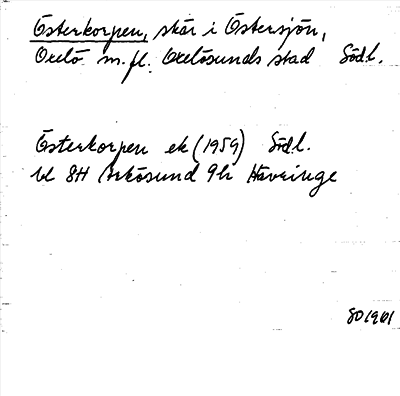 Österkorpen, skär i Östersjön,
Oxelö m.fl. Oxelösunds stad Södl.
Österkorpen ek (1959) Södl.
bl 8H Arkösund 9h Hävringe
801961